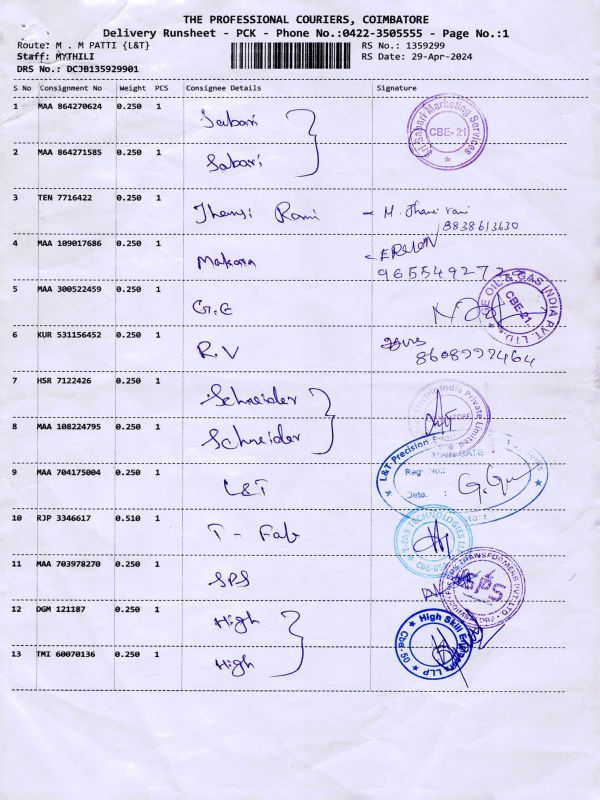 THE PROFESSIONAL COURIERS, COIMBATORE
Delivery Runsheet - PCK - Phone No.:0422-3505555 - Page No.:1
Route: M . M PATTI {L&T} RS No.: 1359299
Staff: MYTHILI RS Date: 29-Apr-2024
DRS No.: DCJB135929901
S No Consignment No Weight PCS Consignee Details Signature
1 MAA 864270624 0.250 1 Sabari
Sri Sabari Marketing Services CBE-21
2 MAA 864271585 0.250 1 Sabari
3 TEN 7716422 0.250 1 Jhansi Rani - M. Jhansi rani
8838613630
4 MAA 109017686 0.250 1 Makara
5 MAA 300522459 0.250 1 G.E
GE OIL & GAS INDIA PVT. LTD. CBE-21
6 KUR 531156452 0.250 1 R.V
8608999464
7 HSR 7122426 0.250 1 Schneider
Electric India Private Limited
8 MAA 108224795 0.250 1 Schneider
L&T Precision
MAIN GATE
Reg. No.:
Date :
9 MAA 704175004 0.250 1 L&T
10 RJP 3346617 0.510 1 T - Fab
T-FAB TECHNOLOGIES
11 MAA 703978270 0.250 1 SPS
SPS TRANSFORMERS PVT LTD
SPS
12 DGM 121187 0.250 1 High
High Skill Exports LLP
Cbe-50
13 TMI 60070136 0.250 1 High